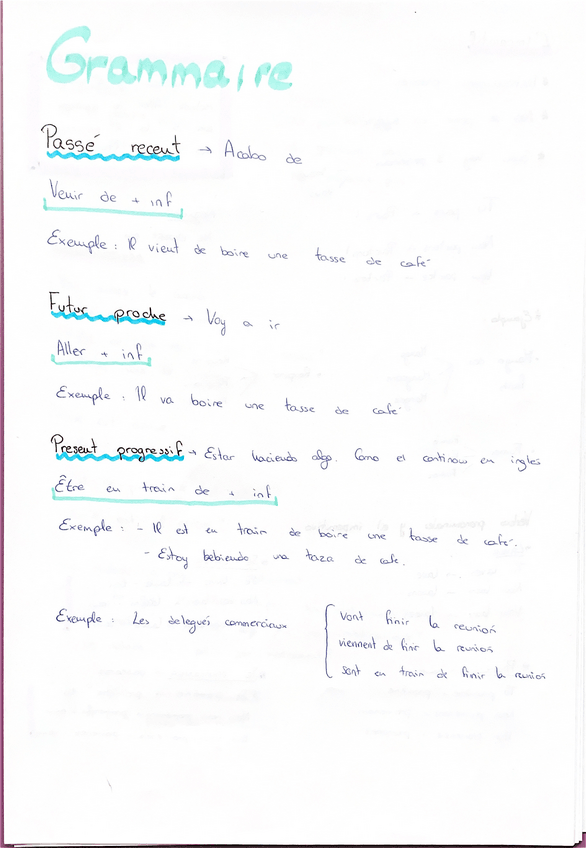 Grammaire
Passé recent → Acabo de
Venir de + inf
Exemple : Il vient de boire une tasse de café
Futur proche → Voy a ir
Aller + inf
Exemple : Il va boire une tasse de café
Present progressif → Estar haciendo algo. Como el continow en ingles
Être en train de + inf
Exemple : - Il est en train de boire une tasse de café.
- Estoy bebiendo una taza de cafe.
Exemple : Les delegués commerciaux
vont finir la reunión
viennent de finir la reunion
sont en train de finir la reunion